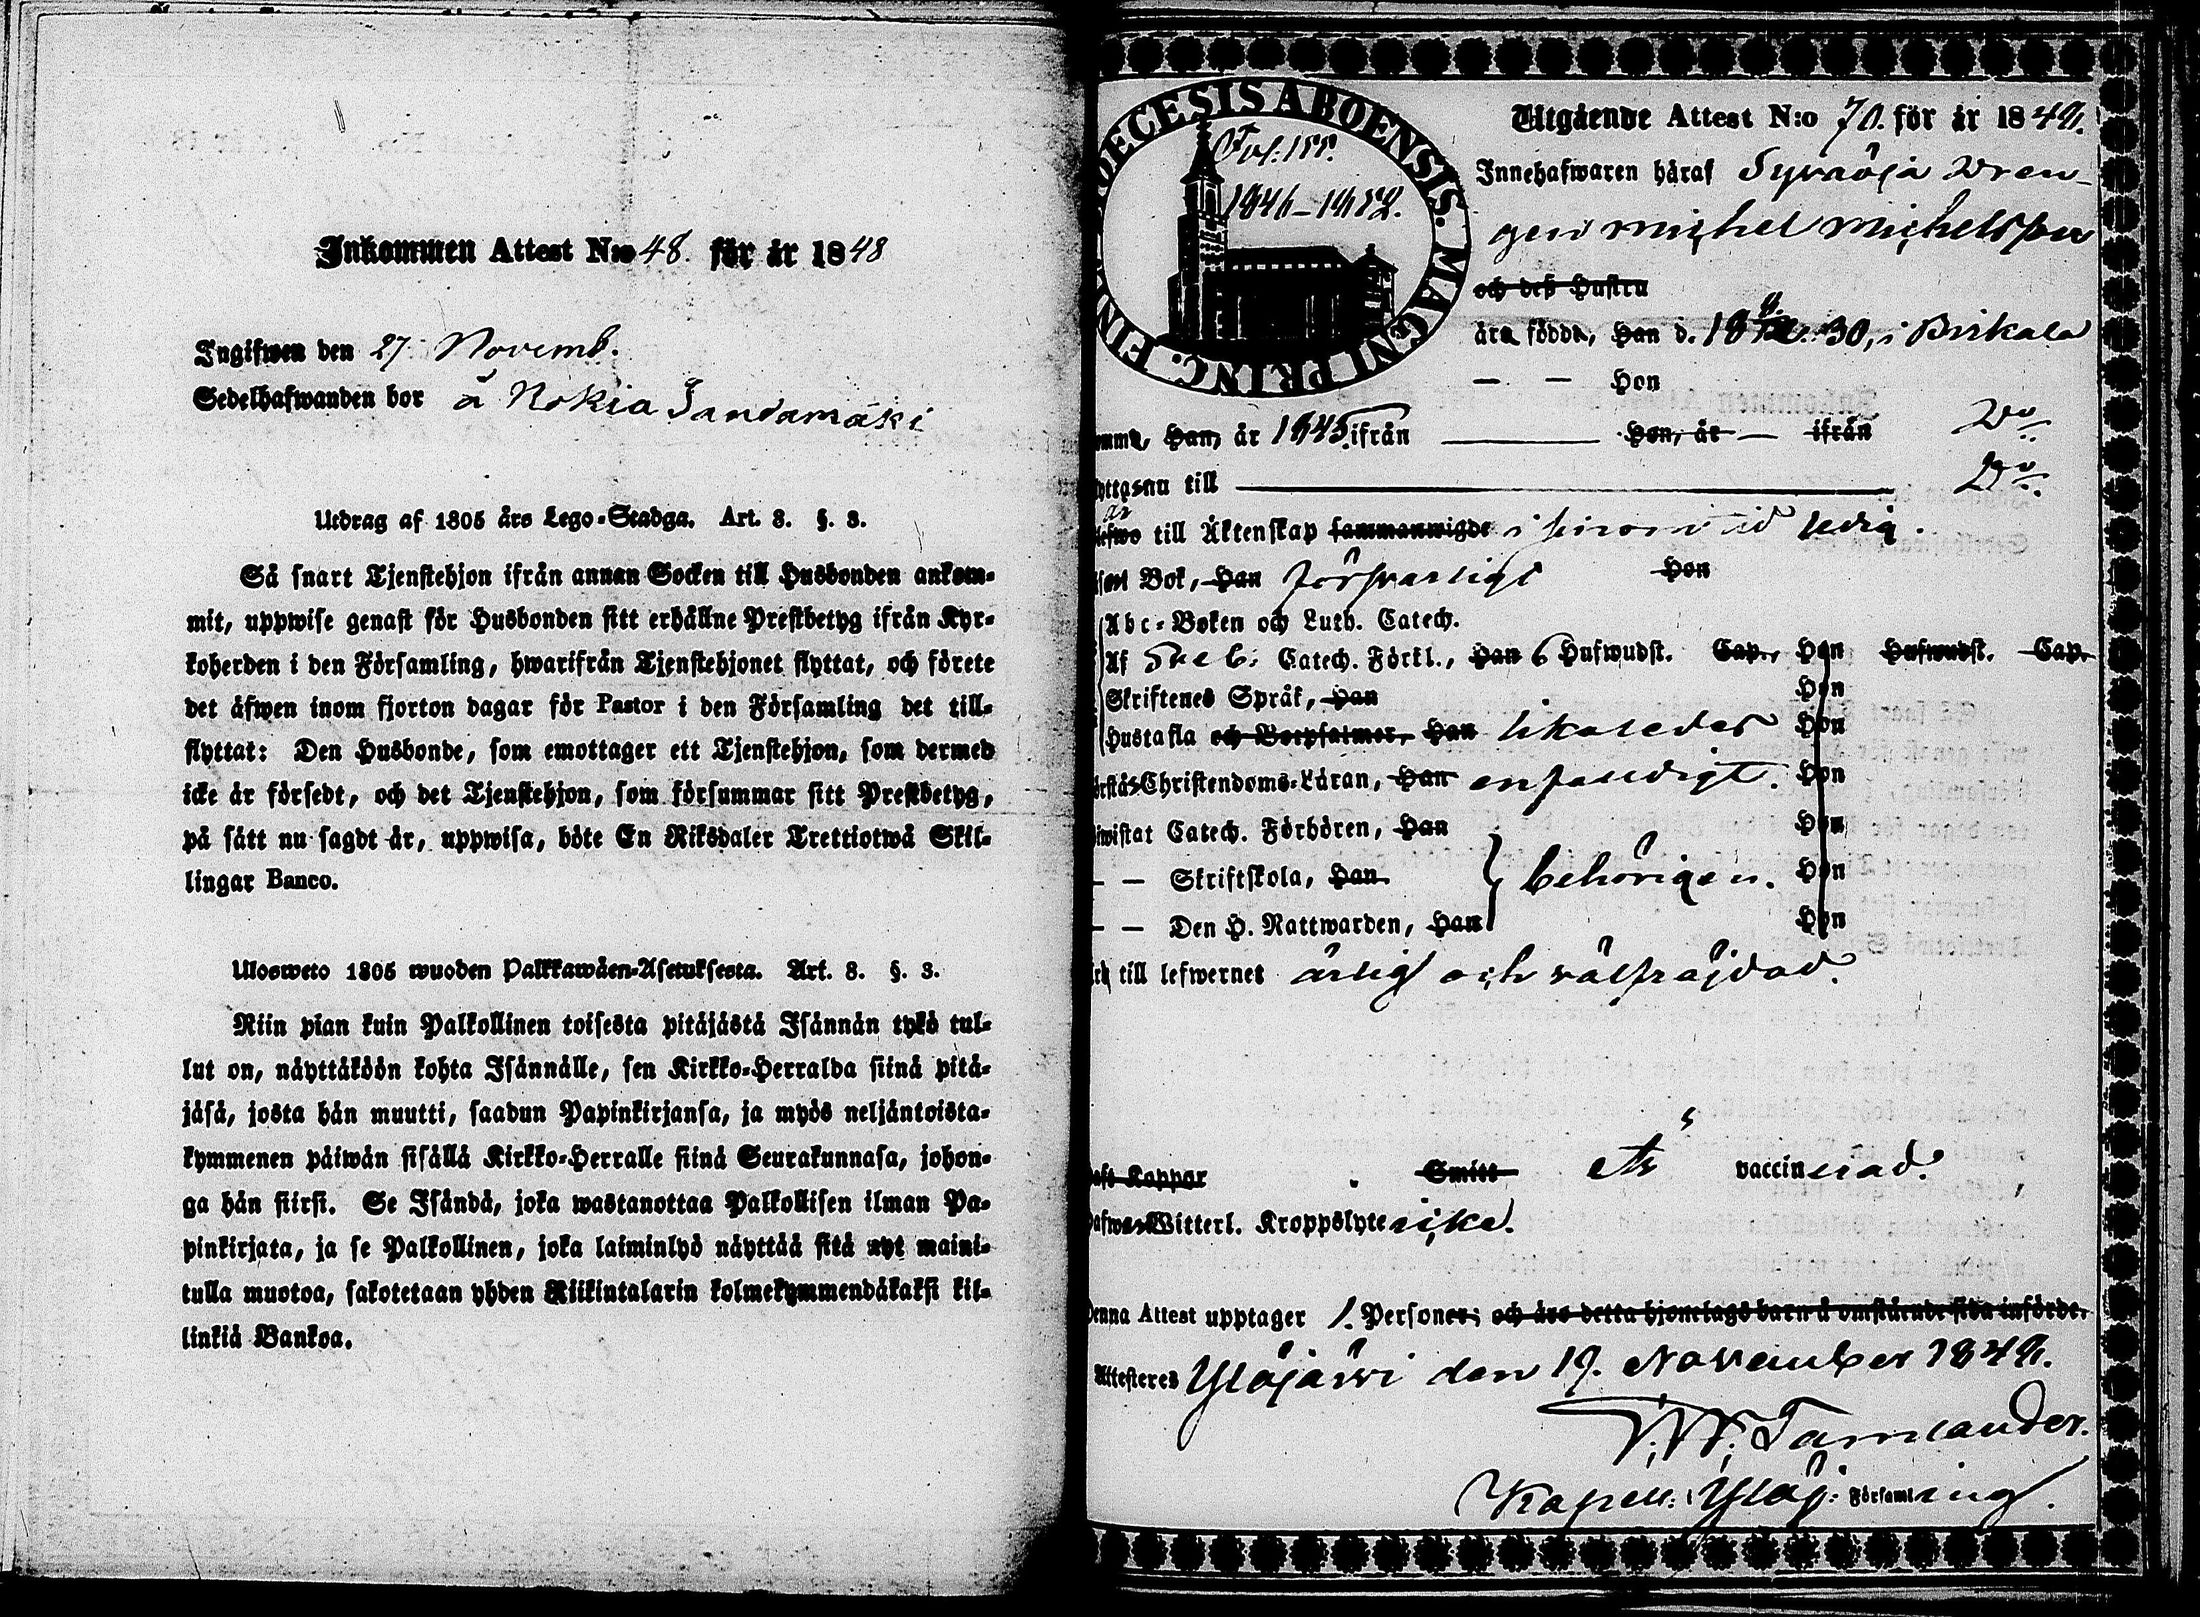 Inkommen Attest N:o 48. för år 1848
Ingifwen den 27 Novemb.
Sedelhafwanden bor å Nokia Sandamäki
Utdrag af 1805 års Lego-Stadga. Art. 8. §. 3.
Så snart Tjenstehjon ifrån annan Socken till Husbonden ankom-
mit, uppwise genast för Husbonden sitt erhållne Prestbetyg ifrån Kyr-
koherden i den Församling, hwarifrån Tjenstehjonet flyttat, och förete
det äfwen inom fjorton dagar för Pastor i den Församling det till-
flyttat: Den Husbonde, som emottager ett Tjenstehjon, som dermed
icke är försedt, och det Tjenstehjon, som försummar sitt Prestbetyg,
på sätt nu sagdt är, uppwisa, böte En Riksdaler Trettiotwå Skil-
lingar Banco.
Ulosweto 1805 wuoden Palkkawäen-Asetuksesta. Art. 8. §. 3.
Niin pian kuin Palkollinen toisesta pitäjästä Isännän tykö tul-
lut on, näyttäköön kohta Isännälle, sen Kirkko-Herralda siinä pitä-
jäsä, josta hän muutti, saadun Papinkirjansa, ja myös neljäntoista-
kymmenen päiwän sisällä Kirkko-Herralle siinä Seurakunnasa, johon-
ga hän siirsi. Se Isändä, joka wastanottaa Palkollisen ilman Pa-
pinkirjata, ja se Palkollinen, joka laiminlyö näyttää sitä nyt maini-
tulla muotoa, sakotetaan yhden Riikintalarin kolmekymmendäkaksi kil-
linkiä Bankoa.
DIOECESIS ABOENSIS. MAGNI PRINC. FIN
Fol: 155.
1846-1852.
Utgående Attest N:o 70. för år 1848.
Innehafwaren häraf Sywäöja Dren-
gen Michel Michelsson
och deß Hustru
äro födde, Han d. 30, i Birkala
— — Hon
Han, år 1845 ifrån Hon, år — ifrån Do
till Do
är
till Äktenskap sammanwigde i sinom tid ledig.
Bok, Han försvarligt Hon
Abc-Boken och Luth. Catech.
Af Sveb: Catech. Förkl., Han 6 Hufwudst. Cap., Hon Hufwudst. Cap.
Skriftenes Språk, Han Hon
Hustafla och Botpsalmer, Han likaledes Hon
Christendoms-Läran, Han enfaldigt. Hon
Catech. Förhören, Han Hon
— — Skriftskola, Han behörigen. Hon
— — Den H. Nattwarden, Han Hon
till lefwernet ärlig och välfräjdad.
Koppor Smitt Är vaccinerad.
Witterl. Kroppslyte icke.
Denna Attest upptager 1. Personer; och äro detta hjonelags barn å omstående sida införde.
Attesteres Ylöjärvi den 19. November 1848.
Tamlander.
Kapell: i Ylöj: Församling.